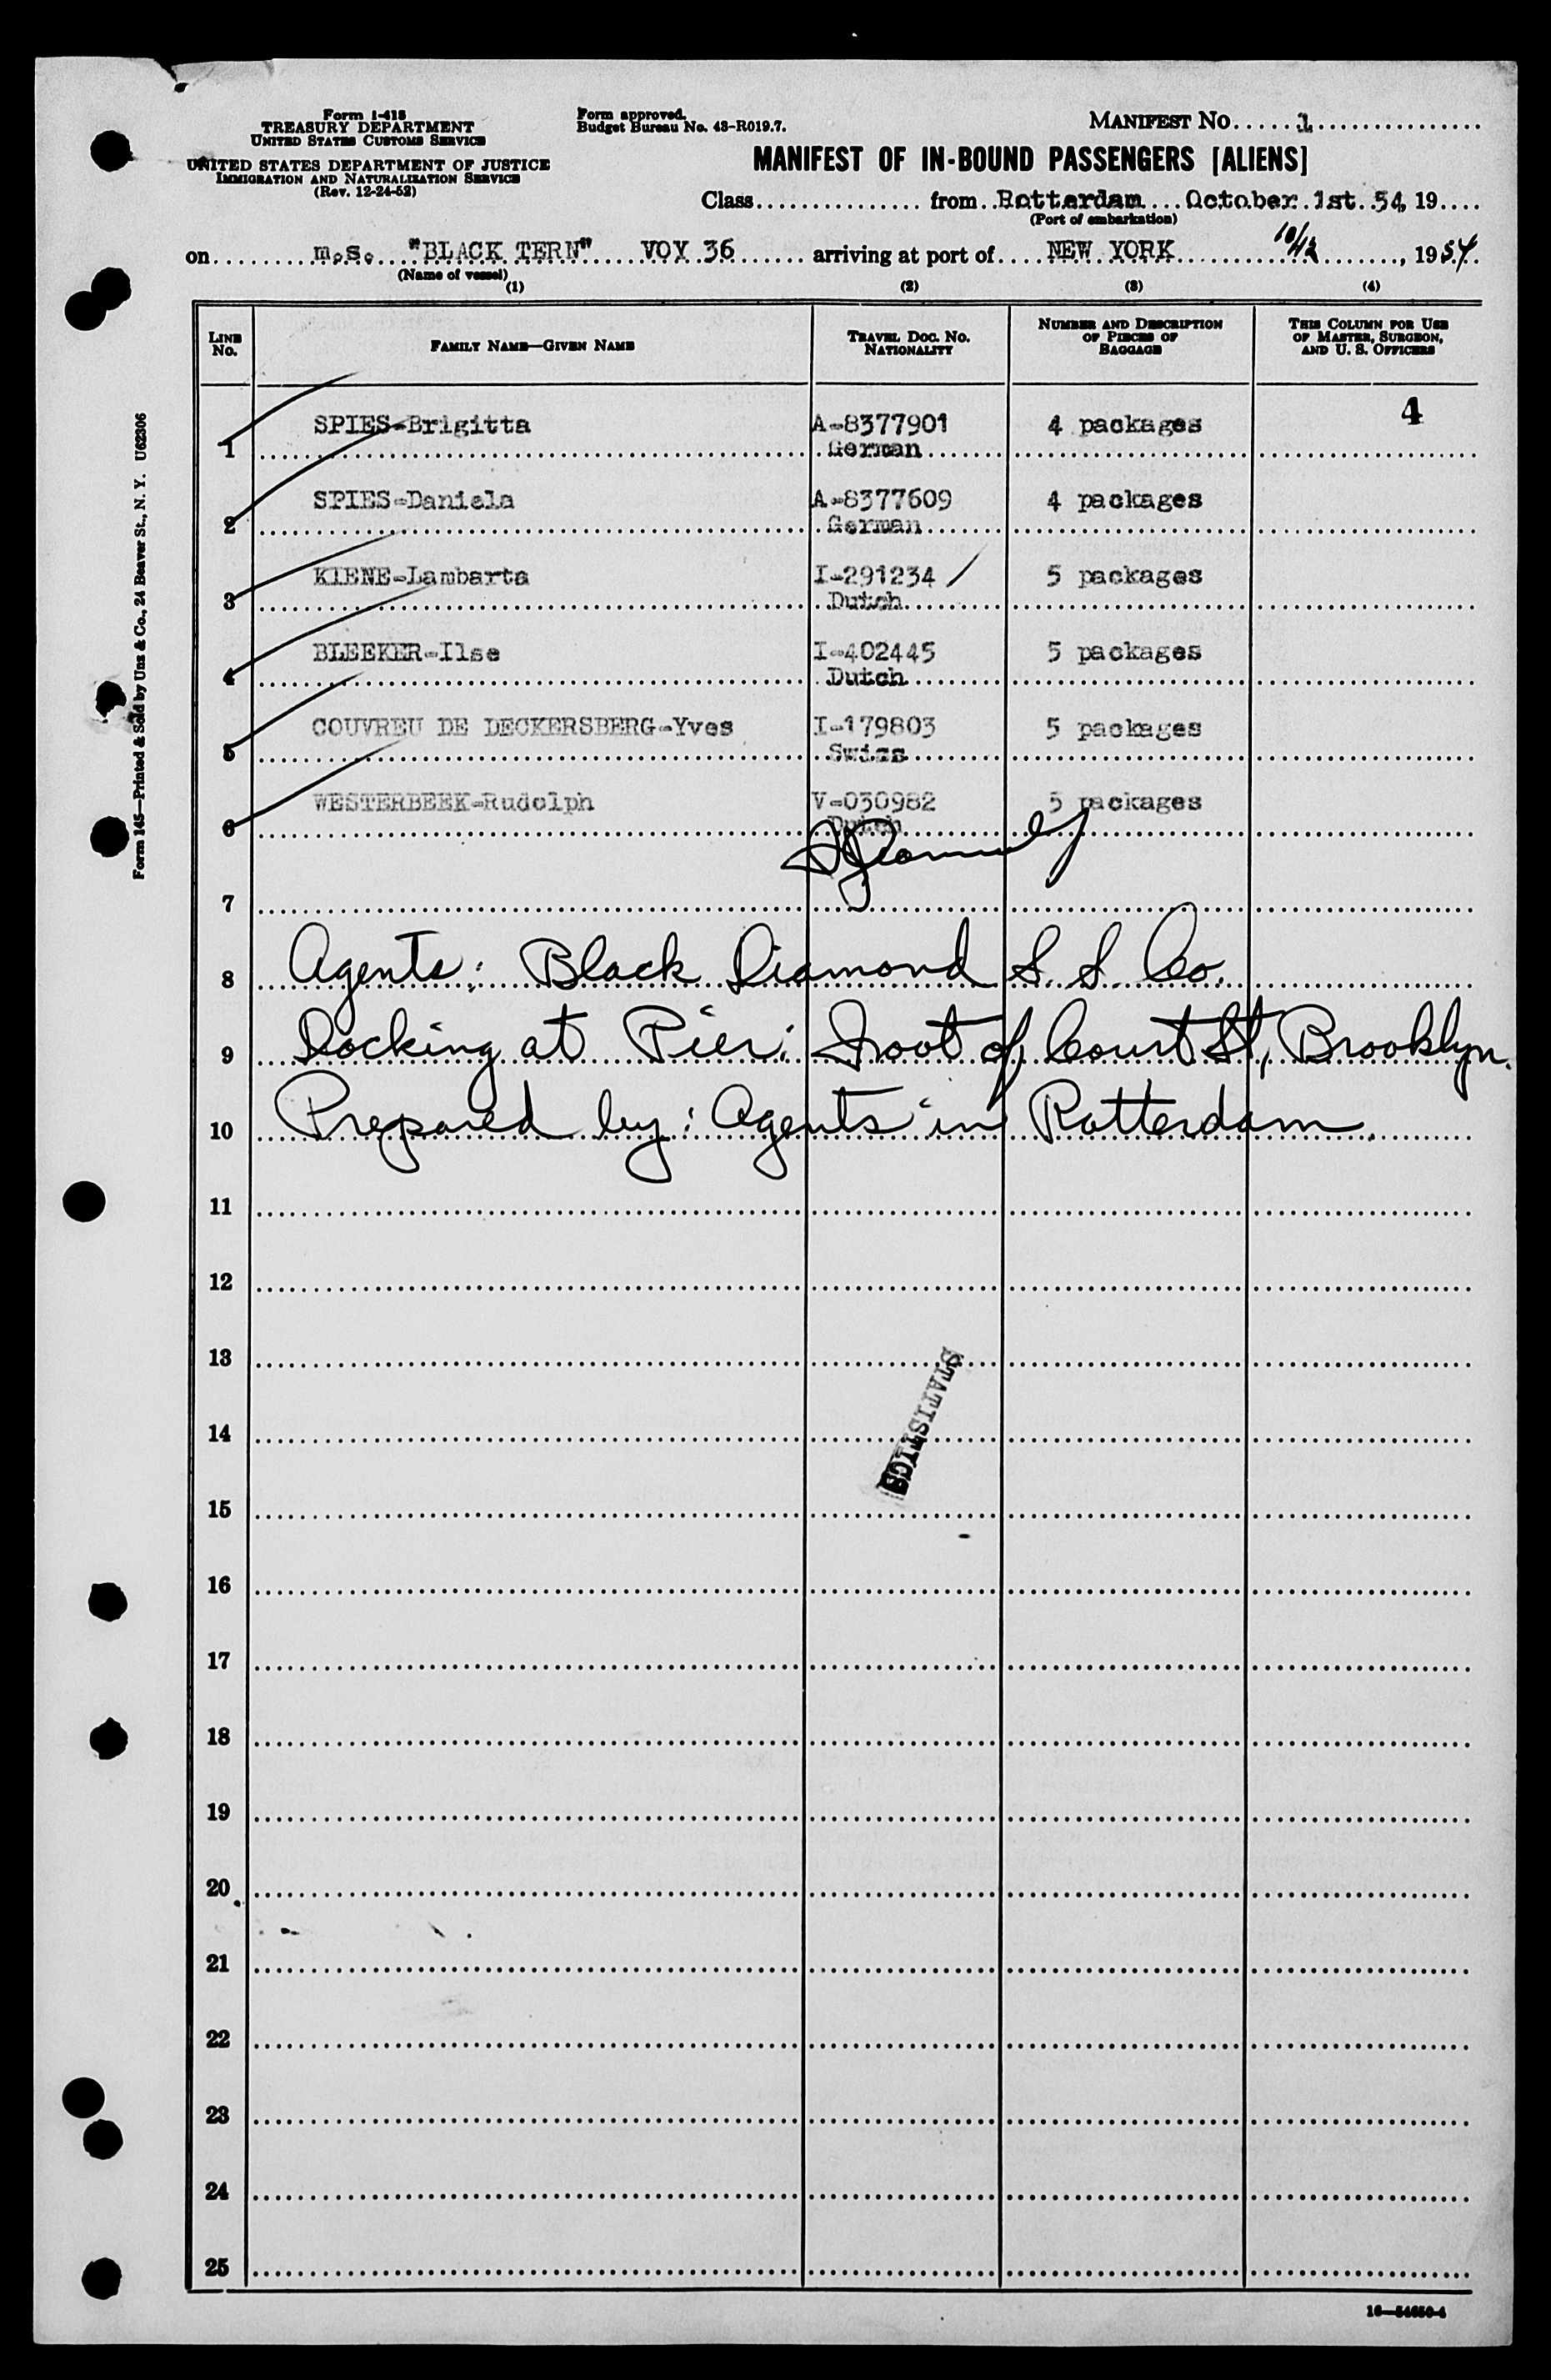 Form I-418
TREASURY DEPARTMENT
UNITED STATES CUSTOMS SERVICE
UNITED STATES DEPARTMENT OF JUSTICE
IMMIGRATION AND NATURALIZATION SERVICE
(Rev. 12-24-52)
Form approved.
Budget Bureau No. 43-R019.7.
MANIFEST NO. 1
MANIFEST OF IN-BOUND PASSENGERS [ALIENS]
Class from Rotterdam October 1st 54, 19
(Port of embarkation)
on m.s. "BLACK TERN" VOY 36 arriving at port of NEW YORK 10/12, 1954
(Name of vessel)
(1) (2) (3) (4)
LINE NO. FAMILY NAME—GIVEN NAME TRAVEL DOC. NO. NATIONALITY NUMBER AND DESCRIPTION OF PIECES OF BAGGAGE THIS COLUMN FOR USE OF MASTER, SURGEON, AND U. S. OFFICERS
4
1 SPIES-Brigitta A-8377901 4 packages
German
2 SPIES-Daniela A-8377609 4 packages
German
3 KIENE-Lambarta I-291234 5 packages
Dutch
4 BLEEKER-Ilse I-402445 5 packages
Dutch
5 COUVREU DE DECKERSBERG-Yves I-179803 5 packages
Swiss
6 WESTERBEEK-Rudolph V-030982 5 packages
Dutch
7
8 Agents: Black Diamond S. S. Co.
9 Docking at Pier: Foot of Court St, Brooklyn.
10 Prepared by: Agents in Rotterdam.
11
12
13
STATISTICS
14
15
16
17
18
19
20
21
22
23
24
25
16—54650-4
Form 145—Printed & Sold by Unz & Co., 24 Beaver St., N. Y. U62306